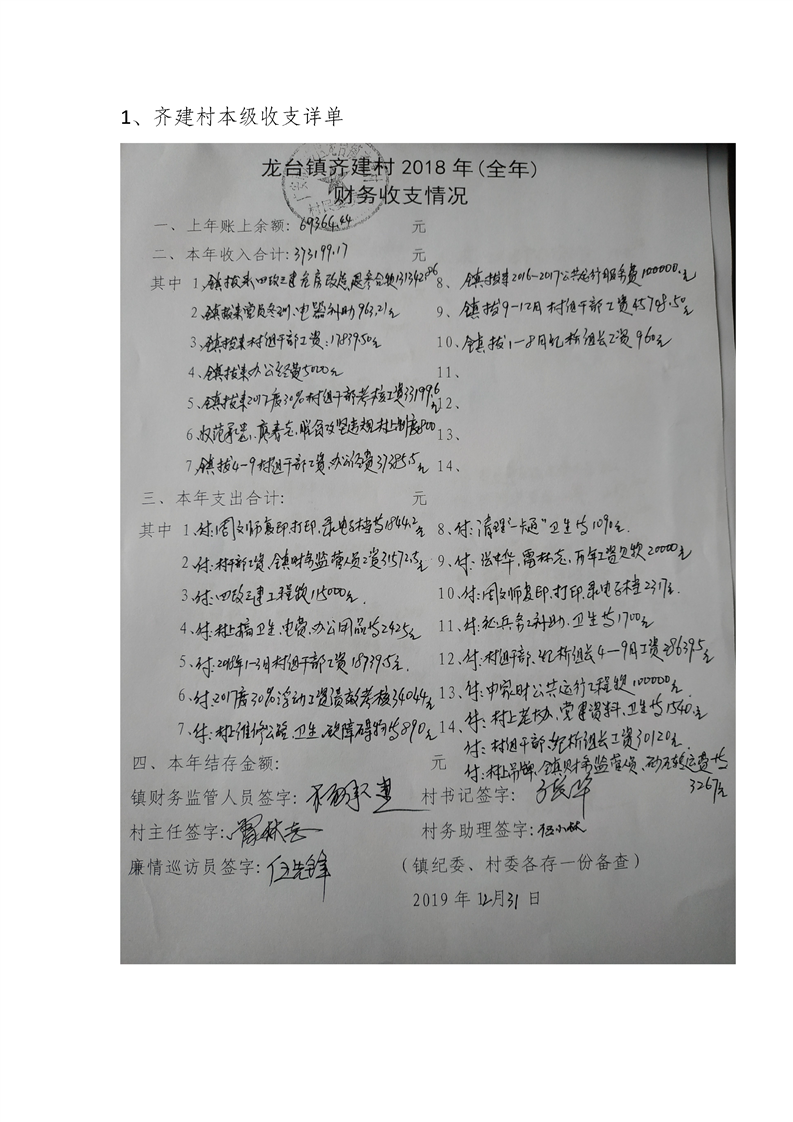 1、齐建村本级收支详单
龙台镇齐建村2018年(全年)
财务收支情况
一、上年账上余额: 69364.44 元
二、本年收入合计: 373199.17 元
其中 1、镇拨来四改三建危房改造 131342.86
2、镇拨来党员冬训、电器补助963.21元
3、镇拨来村组干部工资:17839.50元
4、镇拨来办公经费5000元
5、镇拨来2017度30%村组干部考核工资33199.6元
6、 800
7、镇拨4-9村组干部工资、办公经费37385.5元
8、镇拨来2016-2017公共运行服务费100000.元
9、镇拨9-12月村组干部工资45708.50元
10、镇拨1-8月纪桥组长工资960元
11、
12、
13、
14、
三、本年支出合计: 元
其中 1、付:周文师复印、打印、录电子档等1844.2元
2、付:村干部工资、镇财务监管人员工资31572.5元
3、付:四改三建工程款115000元.
4、付:村上搞卫生、电费、办公用品等2425元
5、付:2018年1-3月村组干部工资18739.5元.
6、付:2017度30%浮动工资绩效考核34044元
7、付:村上维修公路、卫生、破障碍物等890元
8、付:清理“一卡通”卫生等1090元.
9、付:张中华,雷林志,万年工资欠款20000元
10、付:周文师复印、打印、录电子档2317元.
11、付:征兵务工补助、卫生等1700元
12、付:村组干部、纪桥组长4-9月工资28639.5元
13、付:中家财公共运行工程款100000元
14、付:村上老协、党建资料、卫生等1540元
付:村组干部、纪桥组长工资30120元.
付:村上吊牌、镇财务监管员、砂石转运费等
3267元
四、本年结存金额: 元
镇财务监管人员签字: 村书记签字:
村主任签字: 雷林志 村务助理签字: 伍小林
廉情巡访员签字: 伍先锋 (镇纪委、村委各存一份备查)
2019年12月31日